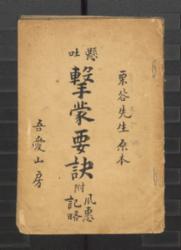 栗谷先生原本
懸吐
擊蒙要訣
附 夙惠記略
吾愛山房